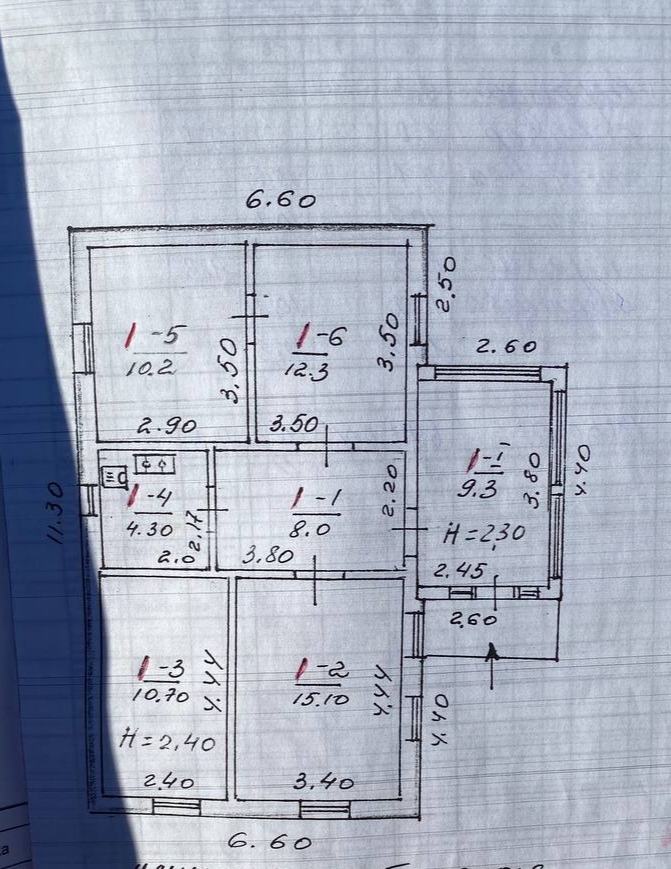 6.60
2.50
I-5
10.2
3.50
2.90
I-6
12.3
3.50
3.50
2.60
I-1'
9.3
3.80
4.40
H=2,30
2.45
2.60
11.30
I-4
4.30
2.17
2.0
I-1
8.0
2.20
3.80
I-3
10.70
4.44
H=2,40
2.40
I-2
15.10
4.44
3.40
4.40
6.60